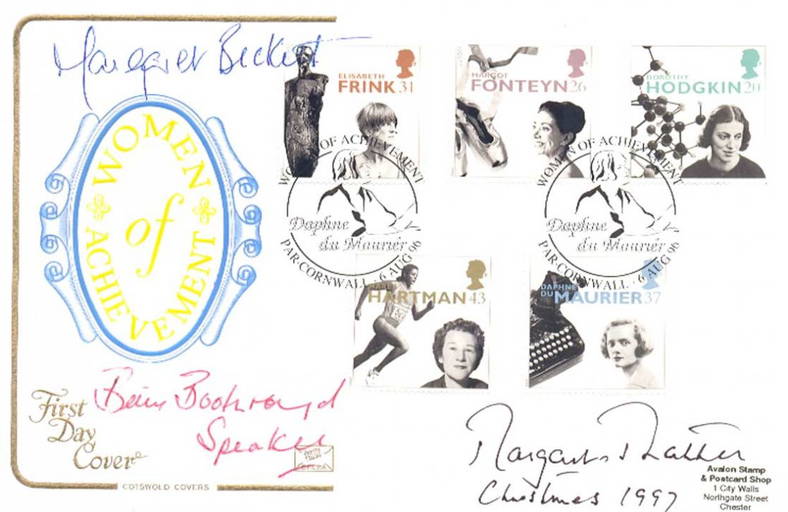 Margaret Beckett
WOMEN
of
ACHIEVEMENT
First
Day
Cover
COTSWOLD COVERS
Betty Boothroyd
Speaker
ELISABETH
FRINK 31
MARGOT
FONTEYN 26
DOROTHY
HODGKIN 20
WOMEN OF ACHIEVEMENT
Daphne
du Maurier
PAR·CORNWALL·6 AUG 96
WOMEN OF ACHIEVEMENT
Daphne
du Maurier
PAR·CORNWALL·6 AUG 96
HARTMAN 43
DAPHNE
DU MAURIER 37
Margaret Thatcher
Christmas 1997
Avalon Stamp
& Postcard Shop
1 City Walls
Northgate Street
Chester